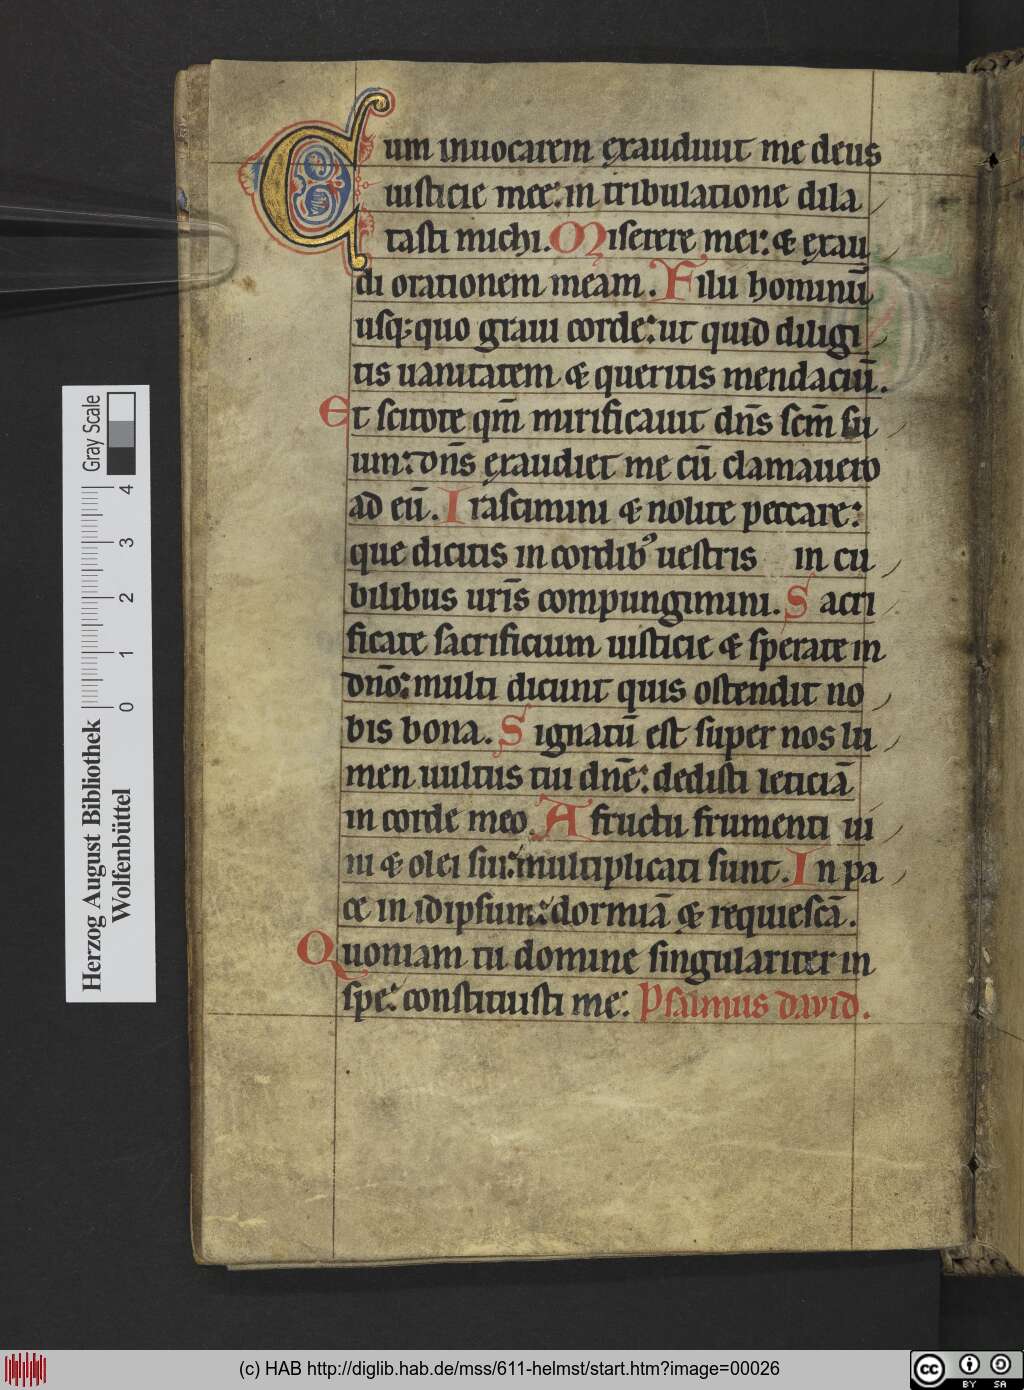 Cum inuocarem exaudiuit me deus
iusticie mee: in tribulatione dila
tasti michi. Miserere mei: & exau
di orationem meam. Filii hominū
usq; quo graui corde: ut quid diligi
tis uanitatem & queritis mendaciū.
Et scitote qm̄ mirificauit dn̄s scm̄ su
um: dn̄s exaudiet me cū clamauero
ad eū. Irascimini & nolite peccare:
que dicitis in cordib' uestris in cu
bilibus ur̄is compungimini. Sacri
ficate sacrificium iusticie & sperate in
dn̄o: multi dicunt quis ostendit no
bis bona. Signatū est super nos lu
men uultus tui dn̄e: dedisti leticiā
in corde meo. A fructu frumenti ui
ni & olei sui: multiplicati sunt. In pa
ce in idipsum: dormiā & requiescā.
Quoniam tu domine singulariter in
spe: constituisti me: Psalmus david.
Herzog August Bibliothek
Wolfenbüttel
0 1 2 3 4
Gray Scale
(c) HAB http://diglib.hab.de/mss/611-helmst/start.htm?image=00026
cc BY SA